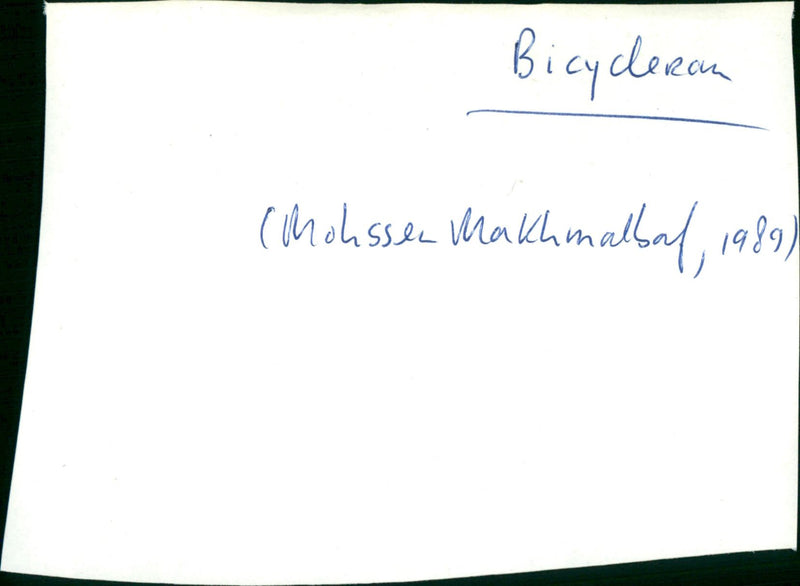 Bicycleran
(Mohssen Makhmalbaf, 1989)